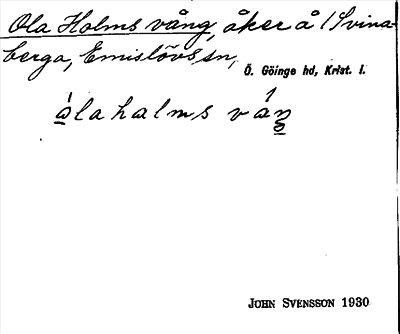 Ola Holms vång, åker å /Svina-
berga, Emislövs sn,
Ö. Göinge hd, Krist. l.
ålahalms våŋ
JOHN SVENSSON 1930